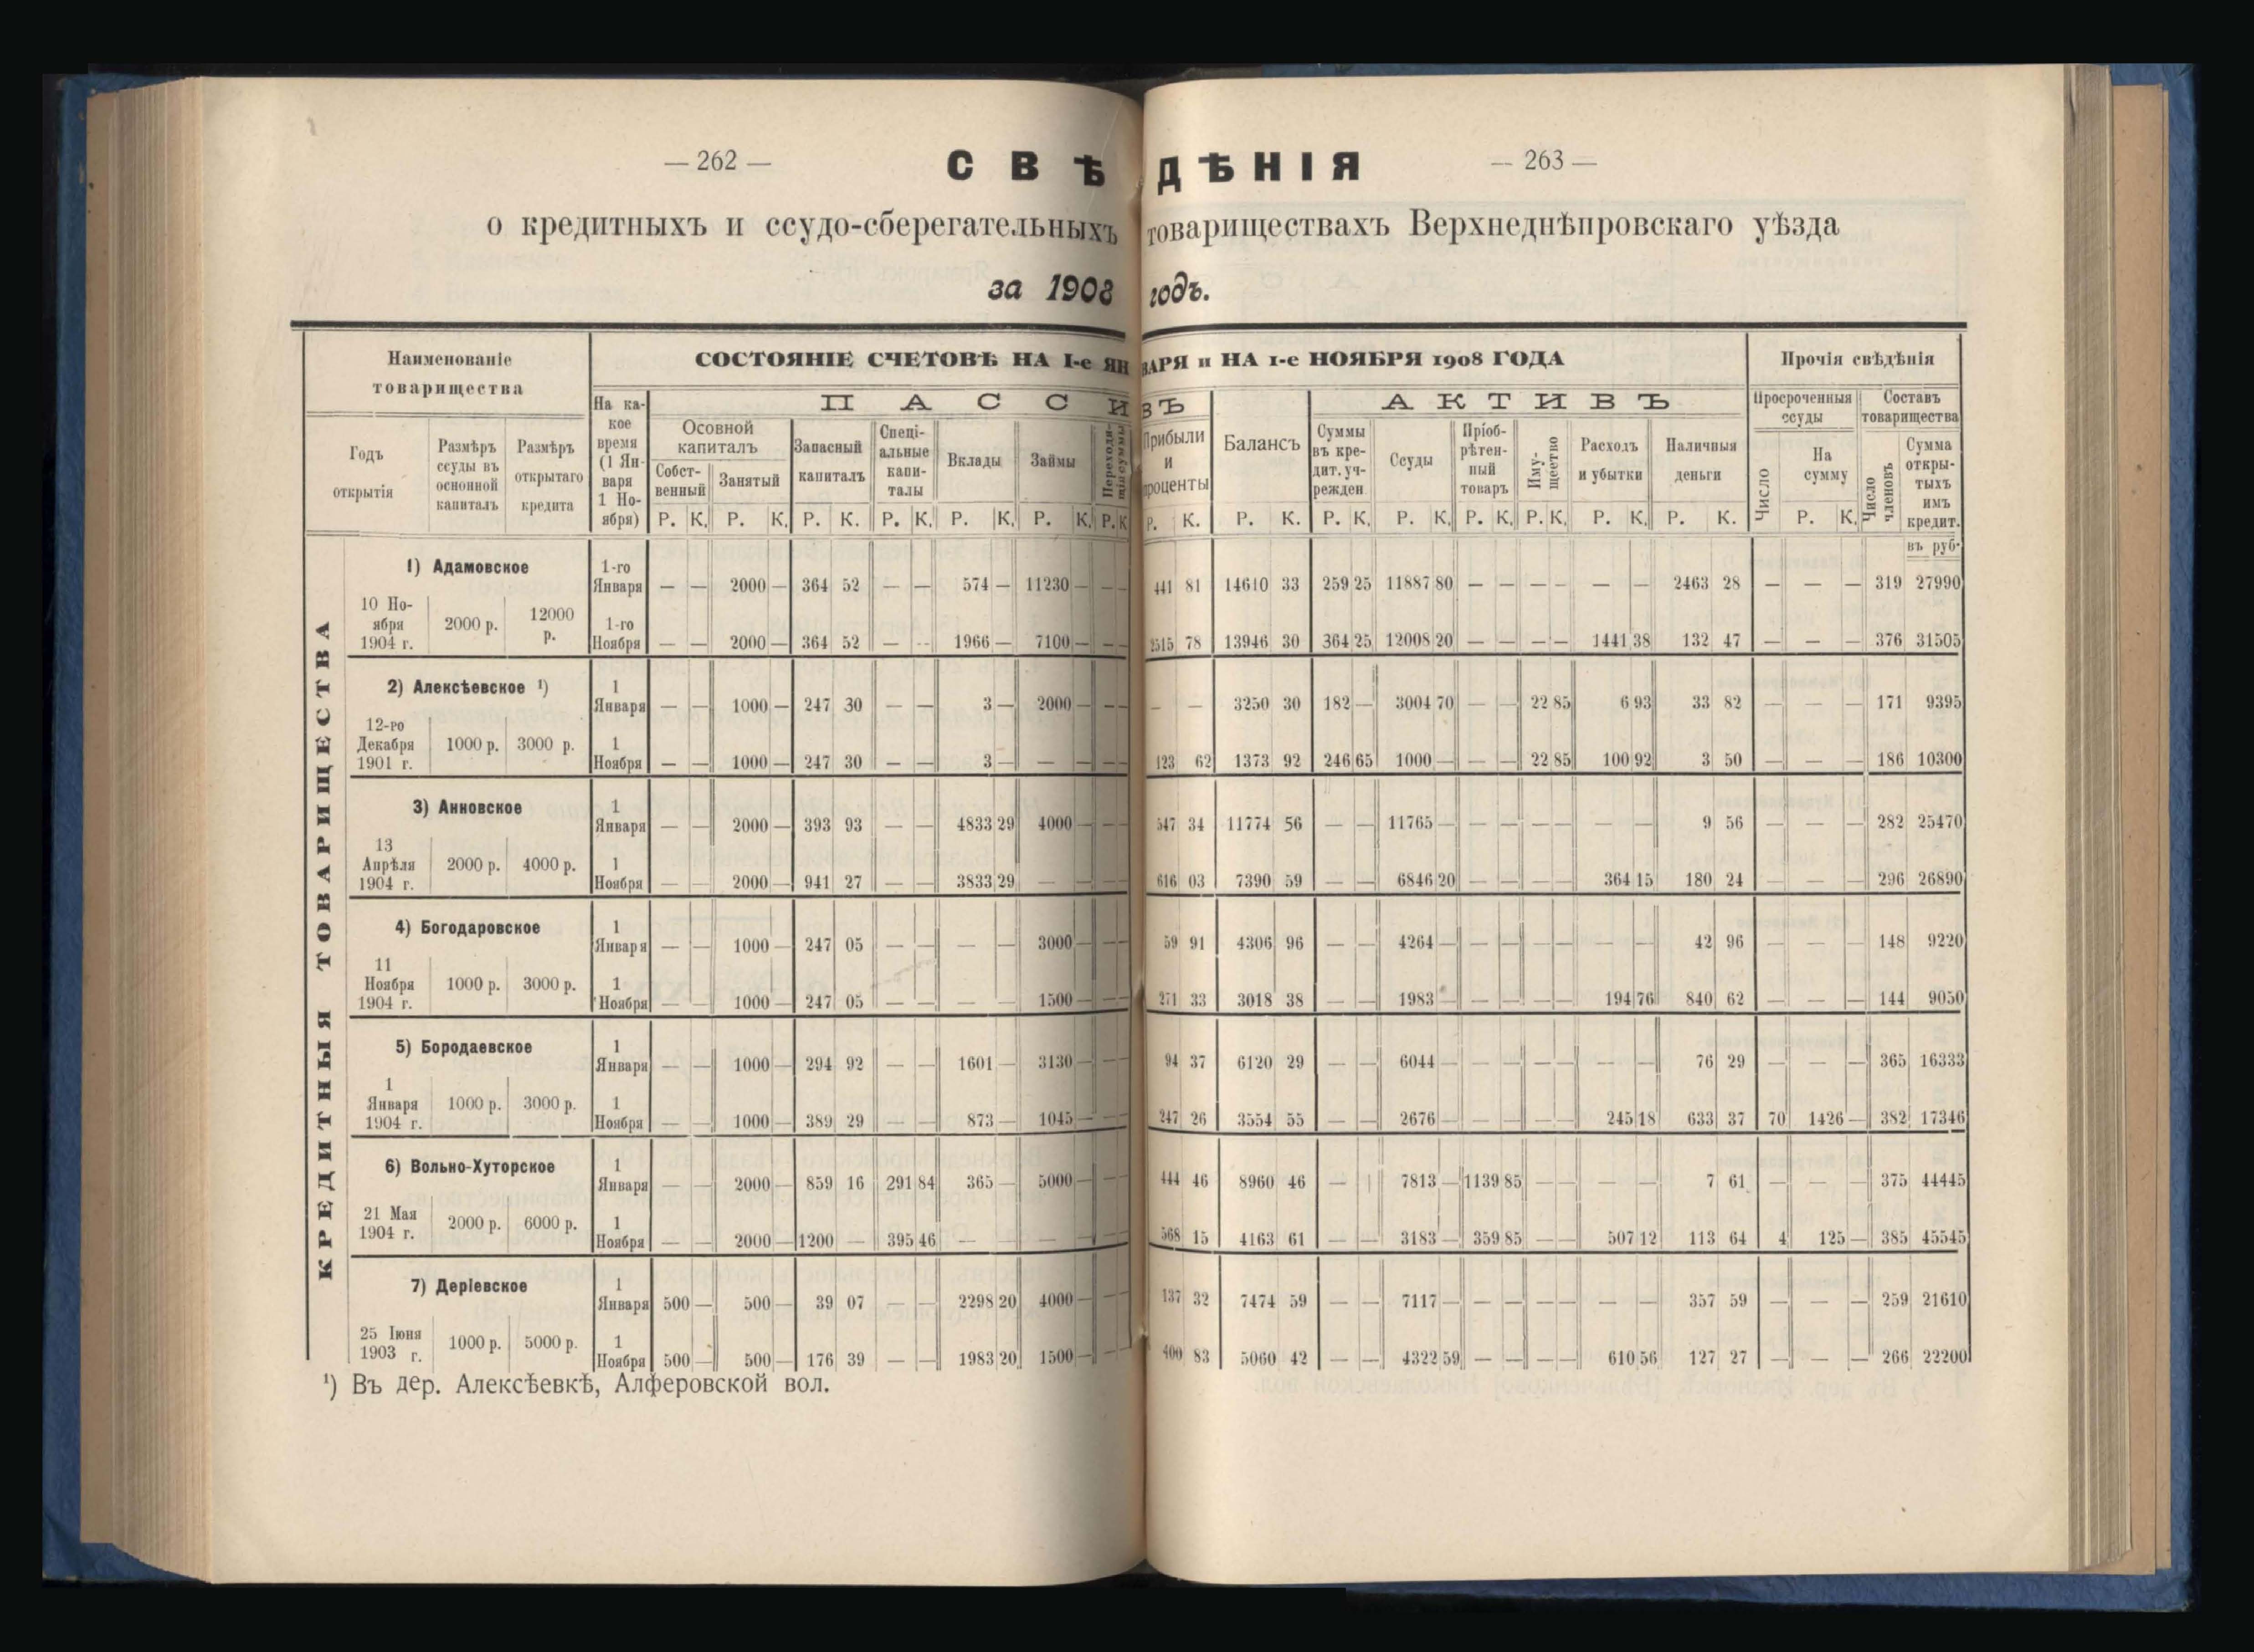 — 262 —
— 263 —
СВѢДѢНІЯ
о кредитныхъ и ссудо-сберегательныхъ товариществахъ Верхнеднѣпровскаго уѣзда
за 1908 годъ.
Наименованіе товарищества
СОСТОЯНІЕ СЧЕТОВЪ НА I-е ЯНВАРЯ и НА 1-е НОЯБРЯ 1908 ГОДА
Прочія свѣдѣнія
Годъ открытія
Размѣръ ссуды въ основной капиталъ
Размѣръ открытаго кредита
На какое время (1 Января 1 Ноября)
ПАССИВЪ
Осовной капиталъ
Собственный
Занятый
Запасный капиталъ
Спеціальные капиталы
Вклады
Займы
Переходящія суммы
Прибыли и проценты
Балансъ
АКТИВЪ
Суммы въ кредит. учрежден.
Ссуды
Пріобрѣтенный товаръ
Имущество
Расходъ и убытки
Наличныя деньги
Просроченныя ссуды
Число
На сумму
Составъ товарищества
Число членовъ
Сумма открытыхъ имъ кредит.
Р. К. Р. К. Р. К. Р. К. Р. К. Р. К. Р. К. Р. К. Р. К. Р. К. Р. К. Р. К. Р. К. Р. К. Р. К. Р. К.
въ руб.
КРЕДИТНЫЯ ТОВАРИЩЕСТВА
1) Адамовское
10 Ноября 1904 г. 2000 р. 12000 р.
1-го Января — — 2000 — 364 52 — — 574 — 11230 — — — 441 81 14610 33 259 25 11887 80 — — — — — — 2463 28 — — — 319 27990
1-го Ноября — — 2000 — 364 52 — — 1966 — 7100 — — — 2515 78 13946 30 364 25 12008 20 — — — — 1441 38 132 47 — — — 376 31505
2) Алексѣевское ¹)
12-го Декабря 1901 г. 1000 р. 3000 р.
1 Января — — 1000 — 247 30 — — 3 — 2000 — — — — — 3250 30 182 — 3004 70 — — 22 85 6 93 33 82 — — — 171 9395
1 Ноября — — 1000 — 247 30 — — 3 — — — — — 123 62 1373 92 246 65 1000 — — — 22 85 100 92 3 50 — — — 186 10300
3) Анновское
13 Апрѣля 1904 г. 2000 р. 4000 р.
1 Января — — 2000 — 393 93 — — 4833 29 4000 — — — 547 34 11774 56 — — 11765 — — — — — — — 9 56 — — — 282 25470
1 Ноября — — 2000 — 941 27 — — 3833 29 — — — — 616 03 7390 59 — — 6846 20 — — — — 364 15 180 24 — — — 296 26890
4) Богодаровское
11 Ноября 1904 г. 1000 р. 3000 р.
1 Января — — 1000 — 247 05 — — — — 3000 — — — 59 91 4306 96 — — 4264 — — — — — — — 42 96 — — — 148 9220
1 Ноября — — 1000 — 247 05 — — — — 1500 — — — 271 33 3018 38 — — 1983 — — — — — 194 76 840 62 — — — 144 9050
5) Бородаевское
1 Января 1904 г. 1000 р. 3000 р.
1 Января — — 1000 — 294 92 — — 1601 — 3130 — — — 94 37 6120 29 — — 6044 — — — — — — — 76 29 — — — 365 16333
1 Ноября — — 1000 — 389 29 — — 873 — 1045 — — — 247 26 3554 55 — — 2676 — — — — — 245 18 633 37 70 1426 — 382 17346
6) Вольно-Хуторское
21 Мая 1904 г. 2000 р. 6000 р.
1 Января — — 2000 — 859 16 291 84 365 — 5000 — — — 444 46 8960 46 — 7813 — 1139 85 — — — — 7 61 — — — 375 44445
1 Ноября — — 2000 — 1200 — 395 46 — — — — — — 568 15 4163 61 — — 3183 — 359 85 — — 507 12 113 64 4 125 — 385 45545
7) Деріевское
25 Іюня 1903 г. 1000 р. 5000 р.
1 Января 500 — 500 — 39 07 — — 2298 20 4000 — — — 137 32 7474 59 — — 7117 — — — — — — — 357 59 — — — 259 21610
1 Ноября 500 — 500 — 176 39 — — 1983 20 1500 — — — 400 83 5060 42 — — 4322 59 — — — — 610 56 127 27 — — — 266 22200
¹) Въ дер. Алексѣевкѣ, Алферовской вол.